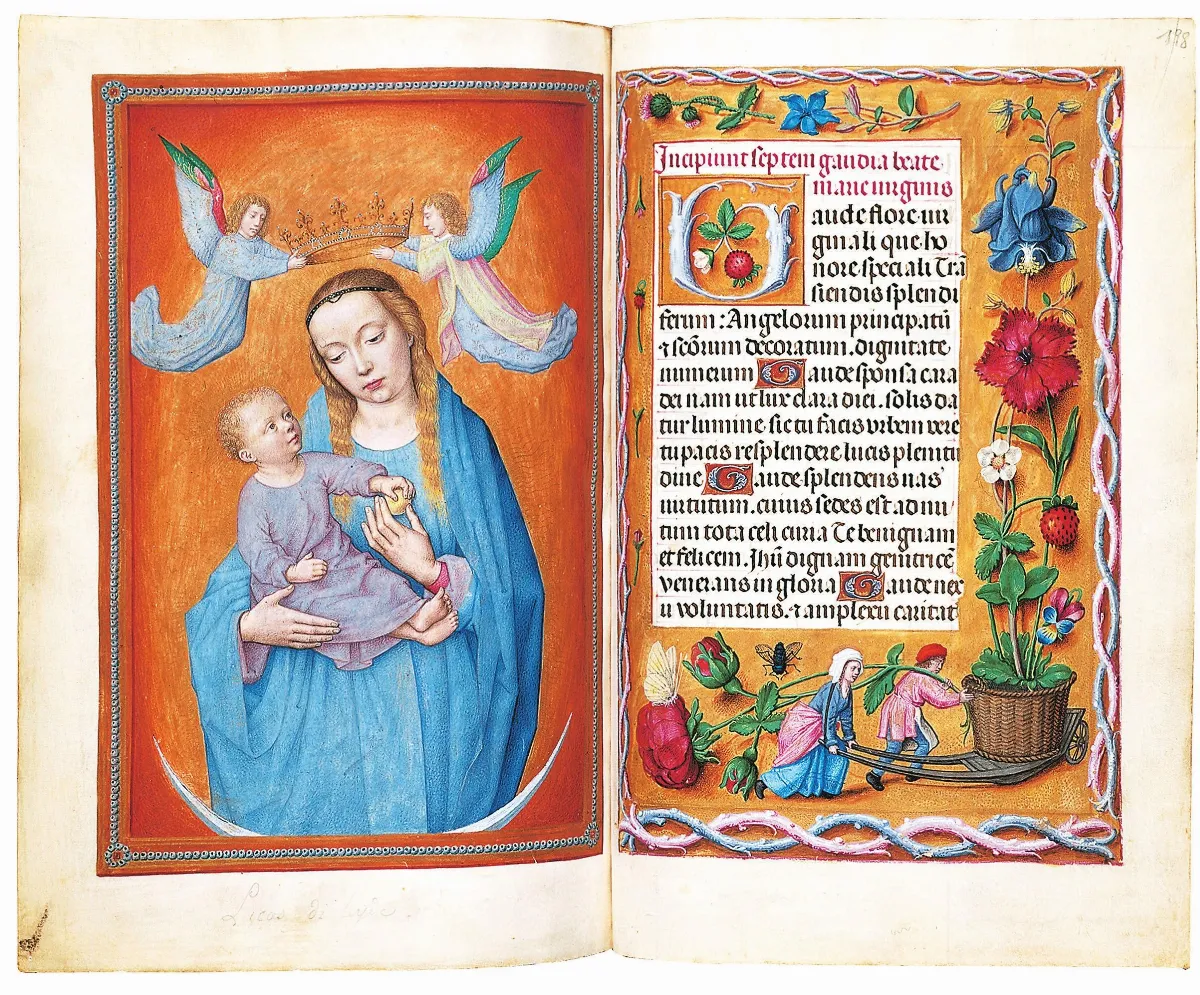 Incipiunt septem gaudia beate
marie uirginis
Gaude flore uir
ginali que ho
nore speciali Trā
siendis splendi
ferum : Angelorum principatū
⁊ scōrum decoratum . dignitate
numerum Gaude sponsa cara
dei nam ut lux clara diei . solis da
tur lumine . sic tu facis orbem vere
tu pacis resplendere lucis plenitu
dine Gaude splendens uas
uirtutum . cuius sedes est ad nu
tum tota celi curia Te benignam
et felicem . Jhū dignam genitricē
venerans in gloria Gaude nex
u voluntatis . ⁊ amplexu caritat
198